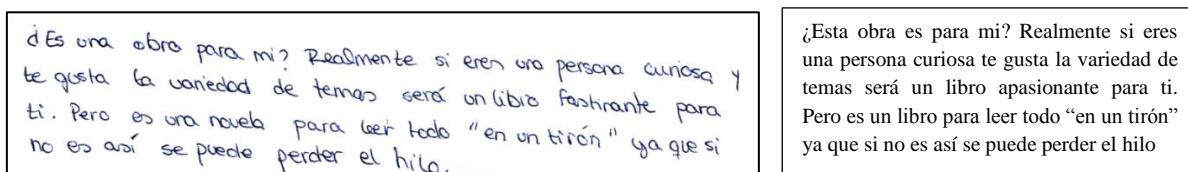 ¿Es una obra para mi? Realmente si eres una persona curiosa y
te gusta la variedad de temas será un libro fastinante para
ti. Pero es una novela para leer todo "en un tirón" ya que si
no es así se puede perder el hilo.
¿Esta obra es para mi? Realmente si eres
una persona curiosa te gusta la variedad de
temas será un libro apasionante para ti.
Pero es un libro para leer todo “en un tirón”
ya que si no es así se puede perder el hilo